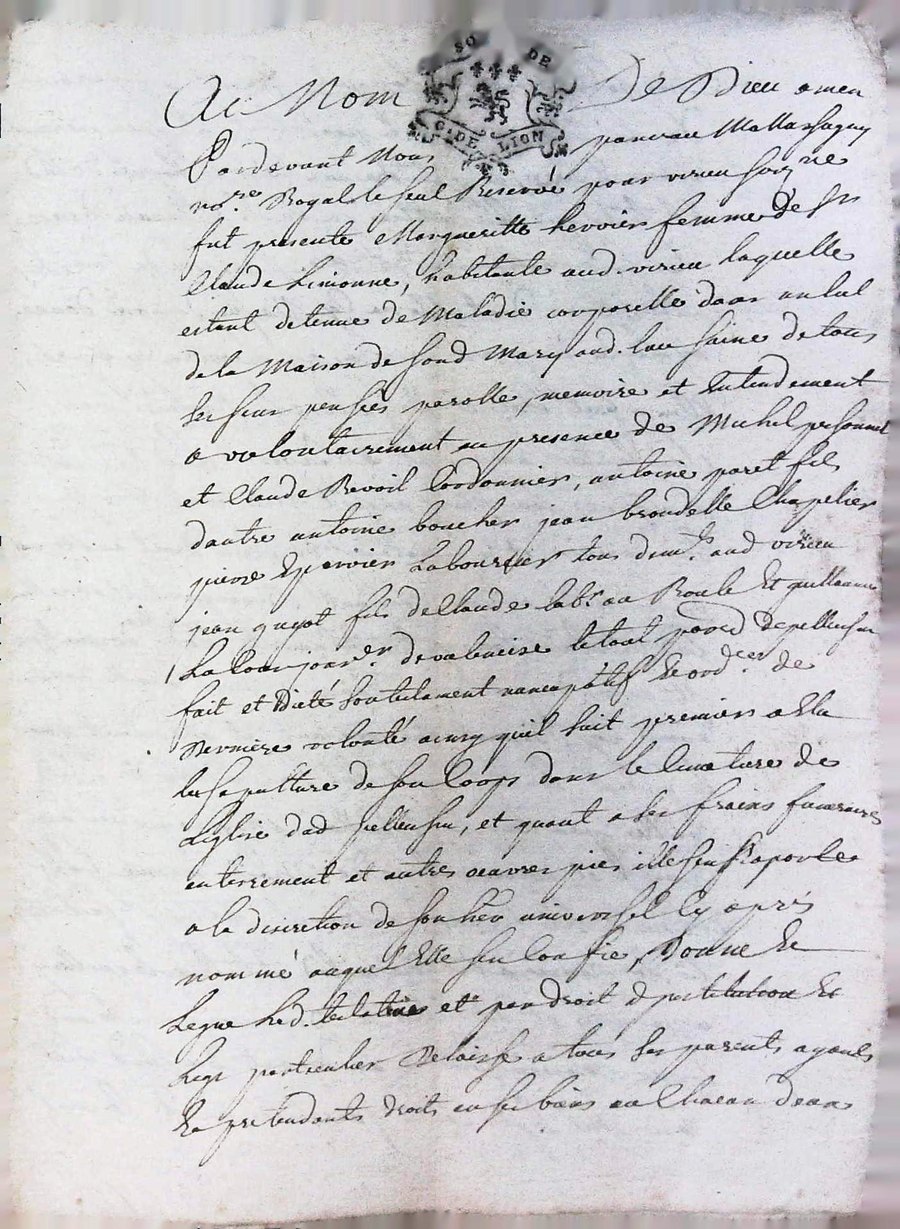 SO DE
G.DE LION
Au Nom De Dieu amen
Pardevant Nous panuau Mallassagny
no.re Royal le seul Reservé pour virieu soub.né
fut presente Margueritte hervier femme de Sr
Claude Limonne, habitante aud. virieu laquelle
estant detenue de Maladie corporelle dans un lict
de la Maison de sond Mary aud. lieu saine de tous
ses sens pensées parolle, memoire et Entendement
a volontairement en presence de Michel
et Claude Revoil Cordonnier, antoine paret fils
dautre antoine boucher jean brondelle Chapelier
pierre Epervier Laboureur tous dem.ts aud virieu
jean guyot fils de Claude lab.r au Roule Et guillaume
jour.er de valencise le tout par.sse d pellussin
fait et dicté son testament nuncupatif et ord.ce de
Derniere volonté ainsy quil suit premier a Elu
la sepulture de son Corps dans le Cimetiere de
Leglise dud pellussin, et quant a ses fraix funeraires
enterrement et autres oeuvres pies elle sen Raporte
a la discretion de son her. universel Cy aprés
nommé auquel Elle sen Confie, Donne Et
Legue lad. testatrice et par droit d jnstitution Et
Legs particulier Delaisse a tous ses parents ayants
Et pretendants droits en ses biens au Chacun deux